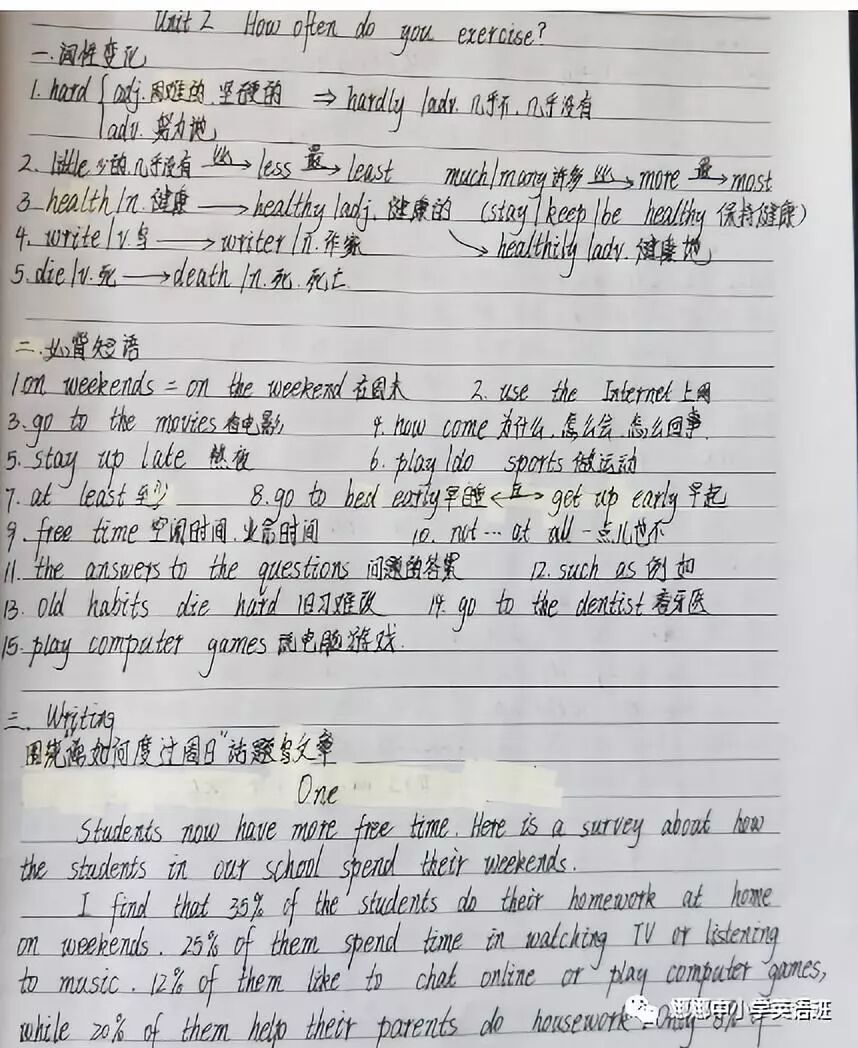 Unit 2 How often do you exercise?
一.词性变化
1. hard { adj. 困难的, 坚硬的 ⇒ hardly /adv. 几乎不, 几乎没有
adv. 努力地
2. little 少的, 几乎没有 比→ less 最→ least much/many 许多 比→ more 最→ most
3. health/n. 健康 → healthy/adj. 健康的 (stay/keep/be healthy 保持健康)
4. write/v. 写 → writer/n. 作家 ↘ healthily/adv. 健康地
5. die/v. 死 → death/n. 死, 死亡
二.必背短语
1. on weekends = on the weekend 在周末 2. use the Internet 上网
3. go to the movies 看电影 4. how come 为什么, 怎么会, 怎么回事
5. stay up late 熬夜 6. play/do sports 做运动
7. at least 至少 8. go to bed early 早睡 ←反→ get up early 早起
9. free time 空闲时间, 业余时间 10. not … at all 一点儿也不
11. the answers to the questions 问题的答案 12. such as 例如
13. old habits die hard 旧习难改 14. go to the dentist 看牙医
15. play computer games 玩电脑游戏.
三. Writing
围绕"如何度过周日"话题写文章
One
Students now have more free time. Here is a survey about how
the students in our school spend their weekends.
I find that 35% of the students do their homework at home
on weekends. 25% of them spend time in watching TV or listening
to music. 12% of them like to chat online or play computer games,
while 20% of them help their parents do housework. Only 8% of
娜娜中小学英语班